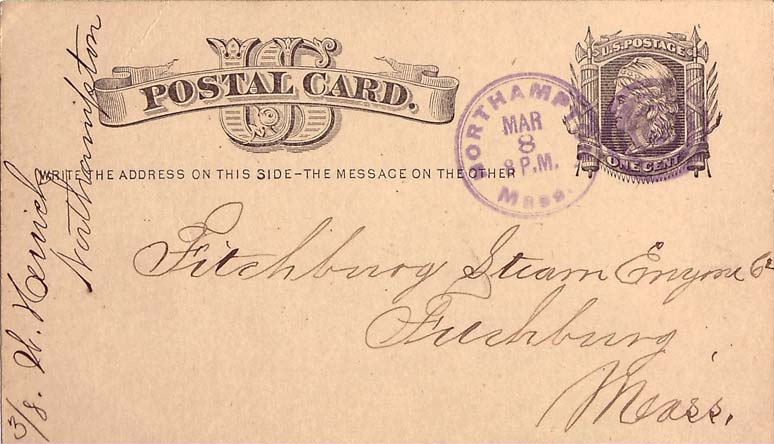 U.S. POSTAGE
POSTAL CARD.
NORTHAMPT
MAR
8
8 P.M.
Mass.
ONE CENT
WRITE THE ADDRESS ON THIS SIDE–THE MESSAGE ON THE OTHER
Fitchburg Steam Engine Co
Fitchburg
Mass.
3/8.
Northampton